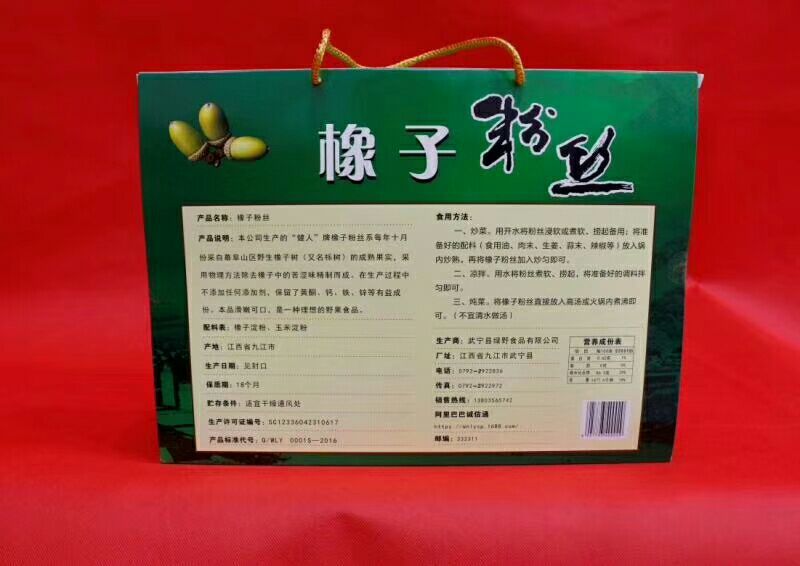 橡子粉丝
产品名称：橡子粉丝
产品说明：本公司生产的“健人”牌橡子粉丝系每年十月
份采自幕阜山区野生橡子树（又名栎树）的成熟果实，采
用物理方法除去橡子中的苦涩味精制而成。在生产过程中
不添加任何添加剂，保留了黄酮、钙、铁、锌等有益成
份。本品滑嫩可口，是一种理想的野果食品。
配料表：橡子淀粉、玉米淀粉
产地：江西省九江市
生产日期：见封口
保质期：18个月
贮存条件：适宜干燥通风处
生产许可证编号：SC12336042310617
产品标准代号：Q/WLY 0001S—2016
食用方法：
一、炒菜。用开水将粉丝浸软或煮软、捞起备用；将准
备好的配料（食用油、肉末、生姜、蒜末、辣椒等）放入锅
内炒熟，再将橡子粉丝加入炒匀即可。
二、凉拌。用水将粉丝煮软、捞起，将准备好的调料拌
匀即可。
三、炖菜。将橡子粉丝直接放入高汤或火锅内煮沸即
可。（不宜清水做汤）
生产商：武宁县绿野食品有限公司
厂址：江西省九江市武宁县
电话：0792-2922836
传真：0792-2922972
销售热线：13803565742
阿里巴巴诚信通
https://wnlysp.1688.com/
邮编：332311
营养成份表